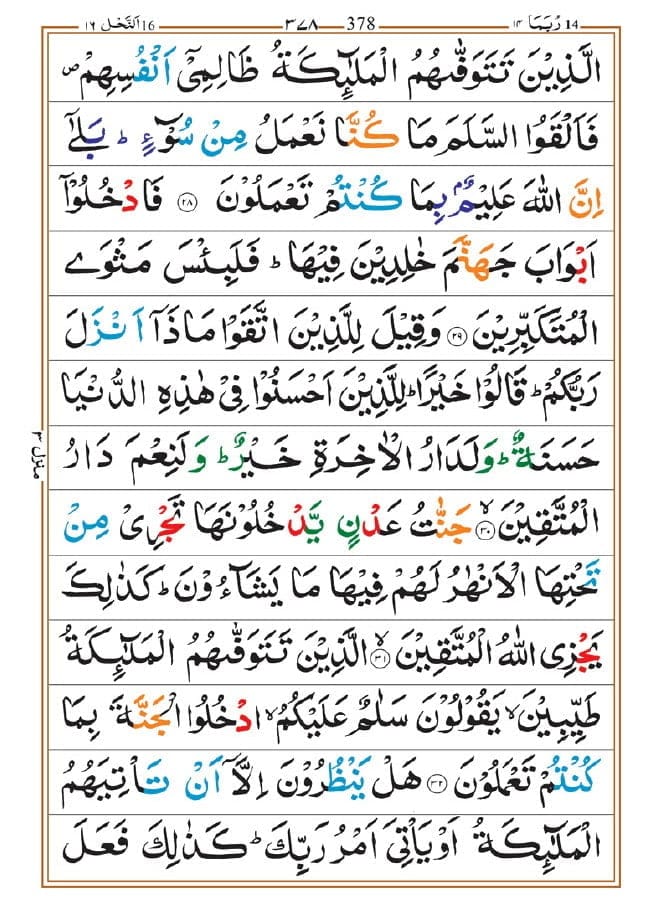 ١٦ اَلنَّحۡل 16 ٣٧٨ 378 ١٤ رُبَمَا 14
الَّذِیۡنَ تَتَوَفّٰىهُمُ الۡمَلٰٓئِكَةُ ظَالِمِىۡۤ اَنۡفُسِهِمۡ ۪
فَاَلۡقَوُا السَّلَمَ مَا كُنَّا نَعۡمَلُ مِنۡ سُوۡٓءٍ ؕ بَلٰٓى
اِنَّ اللّٰهَ عَلِيۡمٌۢ بِمَا كُنۡتُمۡ تَعۡمَلُوۡنَ ﴿۲۸﴾ فَادۡخُلُوۡۤا
اَبۡوَابَ جَهَنَّمَ خٰلِدِيۡنَ فِيۡهَا ؕ فَلَبِئۡسَ مَثۡوَى
الۡمُتَكَبِّرِيۡنَ ﴿۲۹﴾ وَقِيۡلَ لِلَّذِيۡنَ اتَّقَوۡا مَاذَاۤ اَنۡزَلَ
رَبُّكُمۡ ؕ قَالُوۡا خَيۡرًا ؕ لِّلَّذِيۡنَ اَحۡسَنُوۡا فِىۡ هٰذِهِ الدُّنۡيَا
حَسَنَةٌ ؕ وَلَدَارُ الۡاٰخِرَةِ خَيۡرٌ ؕ وَلَنِعۡمَ دَارُ
الۡمُتَّقِيۡنَ ۙ ﴿۳۰﴾ جَنّٰتُ عَدۡنٍ يَّدۡخُلُوۡنَهَا تَجۡرِىۡ مِنۡ
تَحۡتِهَا الۡاَنۡهٰرُ لَهُمۡ فِيۡهَا مَا يَشَآءُوۡنَ ؕ كَذٰلِكَ
يَجۡزِى اللّٰهُ الۡمُتَّقِيۡنَ ۙ ﴿۳۱﴾ الَّذِيۡنَ تَتَوَفّٰىهُمُ الۡمَلٰٓئِكَةُ
طَيِّبِيۡنَ ۙ يَقُوۡلُوۡنَ سَلٰمٌ عَلَيۡكُمُ ۙ ادۡخُلُوا الۡجَنَّةَ بِمَا
كُنۡتُمۡ تَعۡمَلُوۡنَ ﴿۳۲﴾ هَلۡ يَنۡظُرُوۡنَ اِلَّاۤ اَنۡ تَاۡتِيَهُمُ
الۡمَلٰٓئِكَةُ اَوۡ يَاۡتِىَ اَمۡرُ رَبِّكَ ؕ كَذٰلِكَ فَعَلَ
منزل ٣